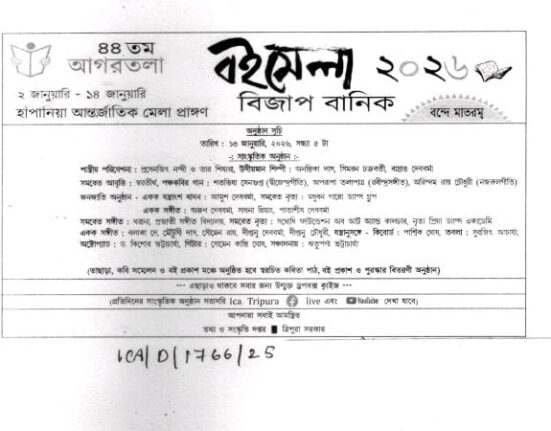 ৪৪ তম
আগরতলা
বইমেলা ২০২৬
২ জানুয়ারি - ১৪ জানুয়ারি
হাঁপানিয়া আন্তর্জাতিক মেলা প্রাঙ্গণ
বিজাপ বানিক
বন্দে মাতরম্
অনুষ্ঠান সূচি
তারিখ : ১৩ জানুয়ারি, ২০২৬, সন্ধ্যা ৫ টা
-: সাংস্কৃতিক অনুষ্ঠান :-
শাস্ত্রীয় পরিবেশনা : প্রসেনজিৎ নন্দী ও তার শিষ্যরা, উদীয়মান শিল্পী : অনন্তিকা দাস, সিমরন চক্রবর্তী, দেববর্মা
সমবেত আবৃত্তি : স্বরতীর্থ, পঞ্চকবির গান : শতভিষা সেনগুপ্ত (দ্বীজেন্দ্রগীতি), অপরূপা তলাপাত্র (রবীন্দ্রসঙ্গীত), অরিন্দম রায় চৌধুরী (নজরুলগীতি)
জনজাতি অনুষ্ঠান - একক যন্ত্রাংশ বাদন : দেববর্মা, সমবেত নৃত্য : মসুবন গরো ডান্স গ্রুপ
একক সঙ্গীত : অরুণ দেববর্মা, সাধনা রিয়াং, দেববর্মা
সমবেত সঙ্গীত : প্রভাতী সঙ্গীত বিদ্যালয়, সমবেত নৃত্য : ফাউন্ডেশন অব আর্ট অ্যান্ড কালচার, নৃত্য প্রিয়া ডান্স একাডেমি
একক সঙ্গীত : বলাকা দে, মৌটুসী দাস, সৌমেন রায়, দীপ্তনু দেববর্মা, দীপ্তনু চৌধুরী, যন্ত্রানুসঙ্গে - কিবোর্ড : পার্শ্বিক ঘোষ, তবলা : সুরজিৎ আচার্য্য,
অক্টোপ্যাড : ড. কিশোর ভট্টাচার্য্য, গিটার : সোমেন কান্তি ঘোষ, সঞ্চালনায় : ঋতুপর্ণা ভট্টাচার্য্য
(তাছাড়া, কবি সম্মেলন ও বই প্রকাশ মঞ্চে অনুষ্ঠিত হবে স্বরচিত কবিতা পাঠ, বই প্রকাশ ও পুরস্কার বিতরণী অনুষ্ঠান)
*** এছাড়াও থাকবে সবার জন্য উন্মুক্ত ড্রপবক্স ক্যুইজ ***
(প্রতিদিনের সাংস্কৃতিক অনুষ্ঠান সরাসরি Ica. Tripura live এবং YouTube দেখা যাবে)
আপনারা সবাই আমন্ত্রিত
তথ্য ও সংস্কৃতি দপ্তর ত্রিপুরা সরকার
ICA/D/1766/25